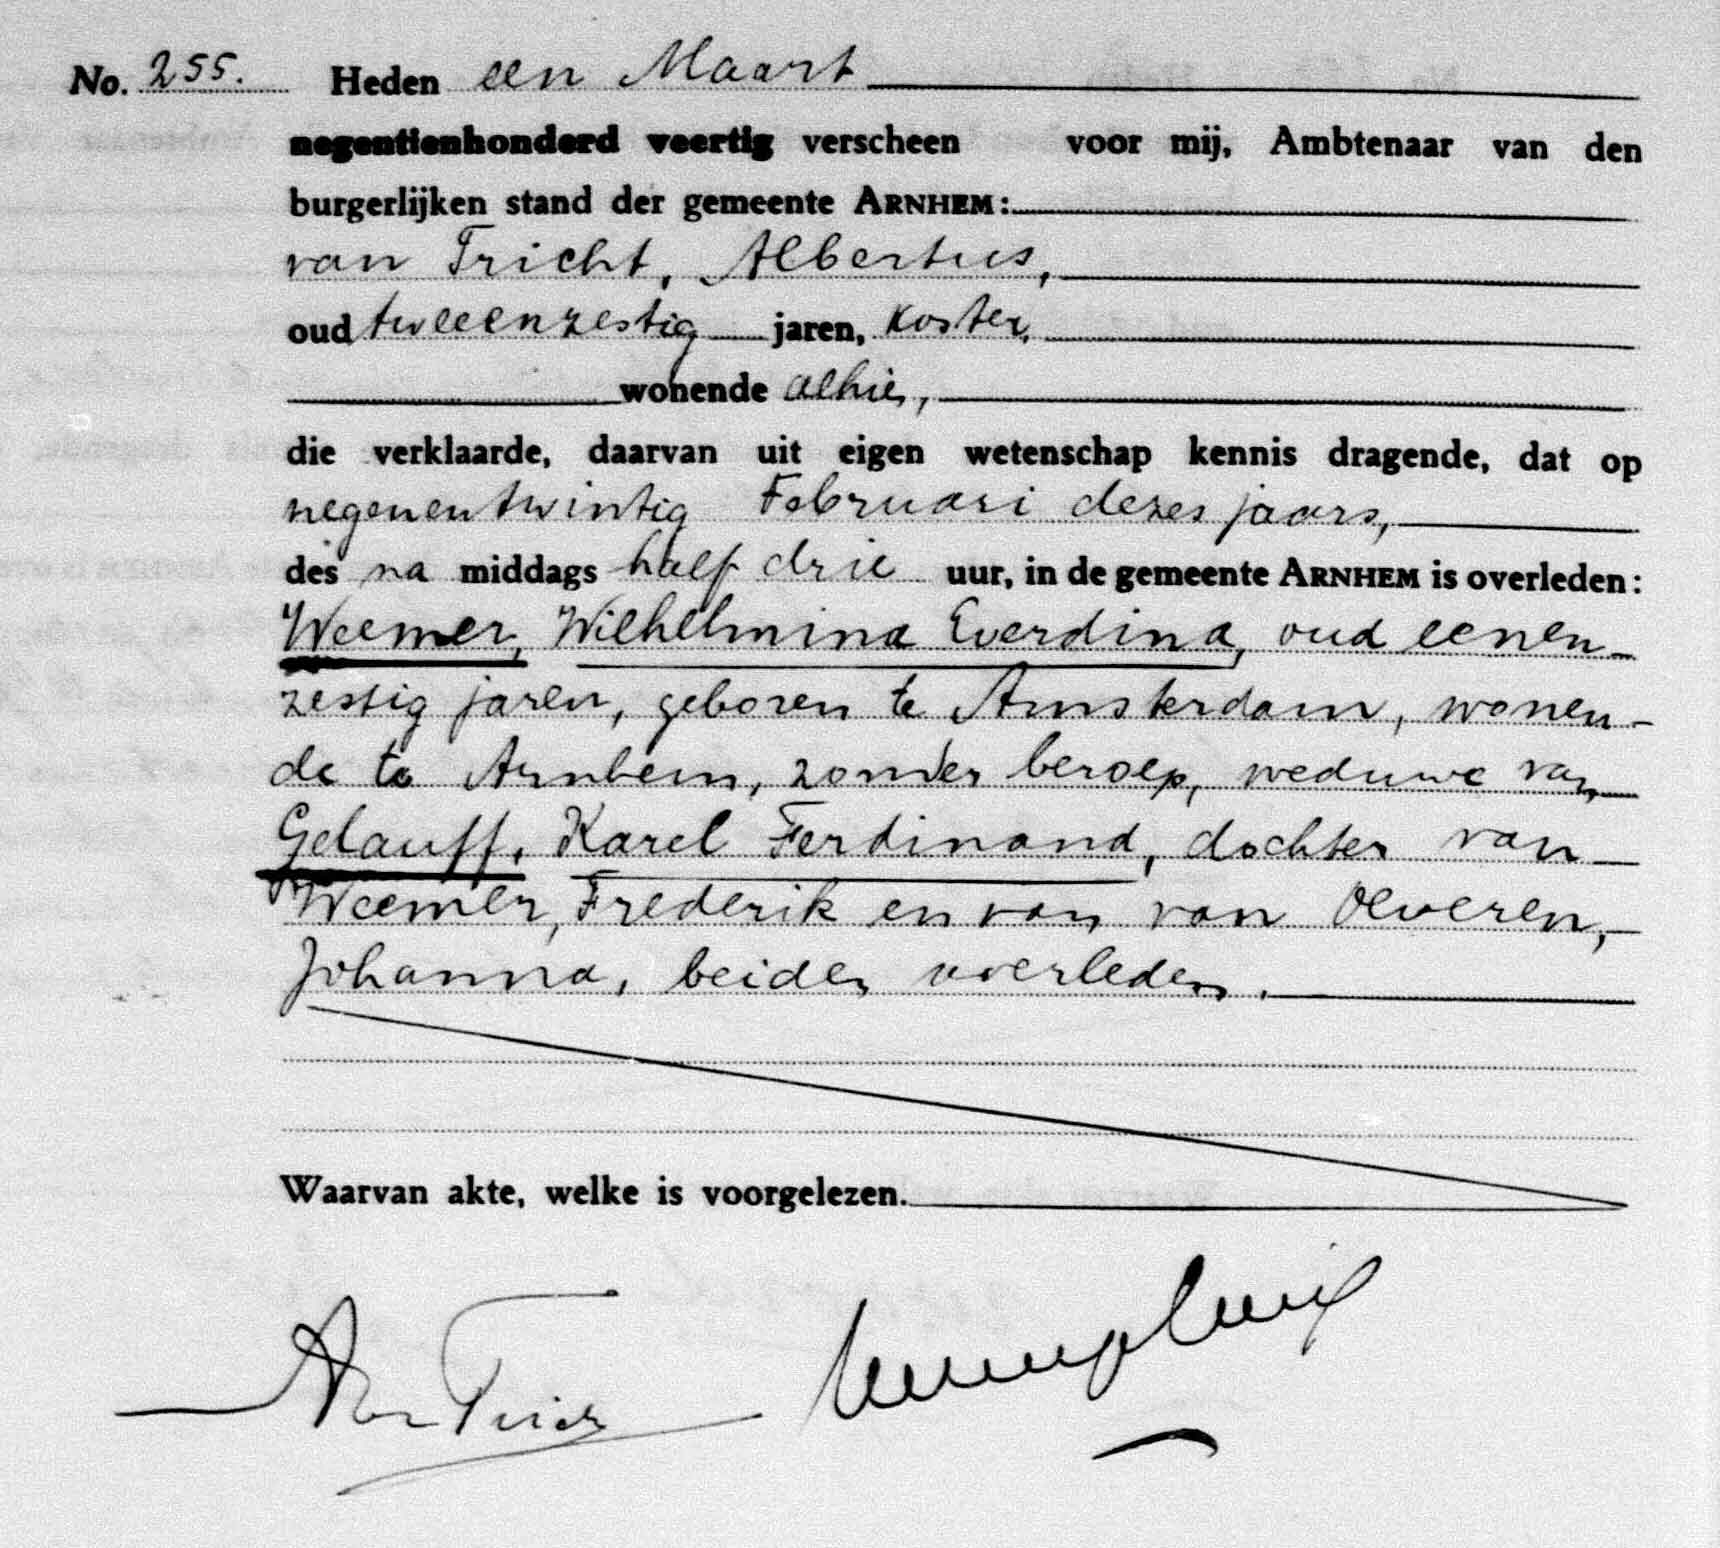 No. 255. Heden een Maart
negentienhonderd veertig verscheen voor mij, Ambtenaar van den
burgerlijken stand der gemeente ARNHEM:
van Tricht, Albertus,
oud tweeenzestig jaren, koster,
wonende alhier,
die verklaarde, daarvan uit eigen wetenschap kennis dragende, dat op
negenentwintig Februari dezes jaars,
des na middags half drie uur, in de gemeente ARNHEM is overleden:
Weemer, Wilhelmina Everdina, oud eenen-
zestig jaren, geboren te Amsterdam, wonen-
de te Arnhem, zonder beroep, weduwe van
Gelauff, Karel Ferdinand, dochter van
Weemer, Frederik en van van Oeveren,
Johanna, beiden overleden.
Waarvan akte, welke is voorgelezen.